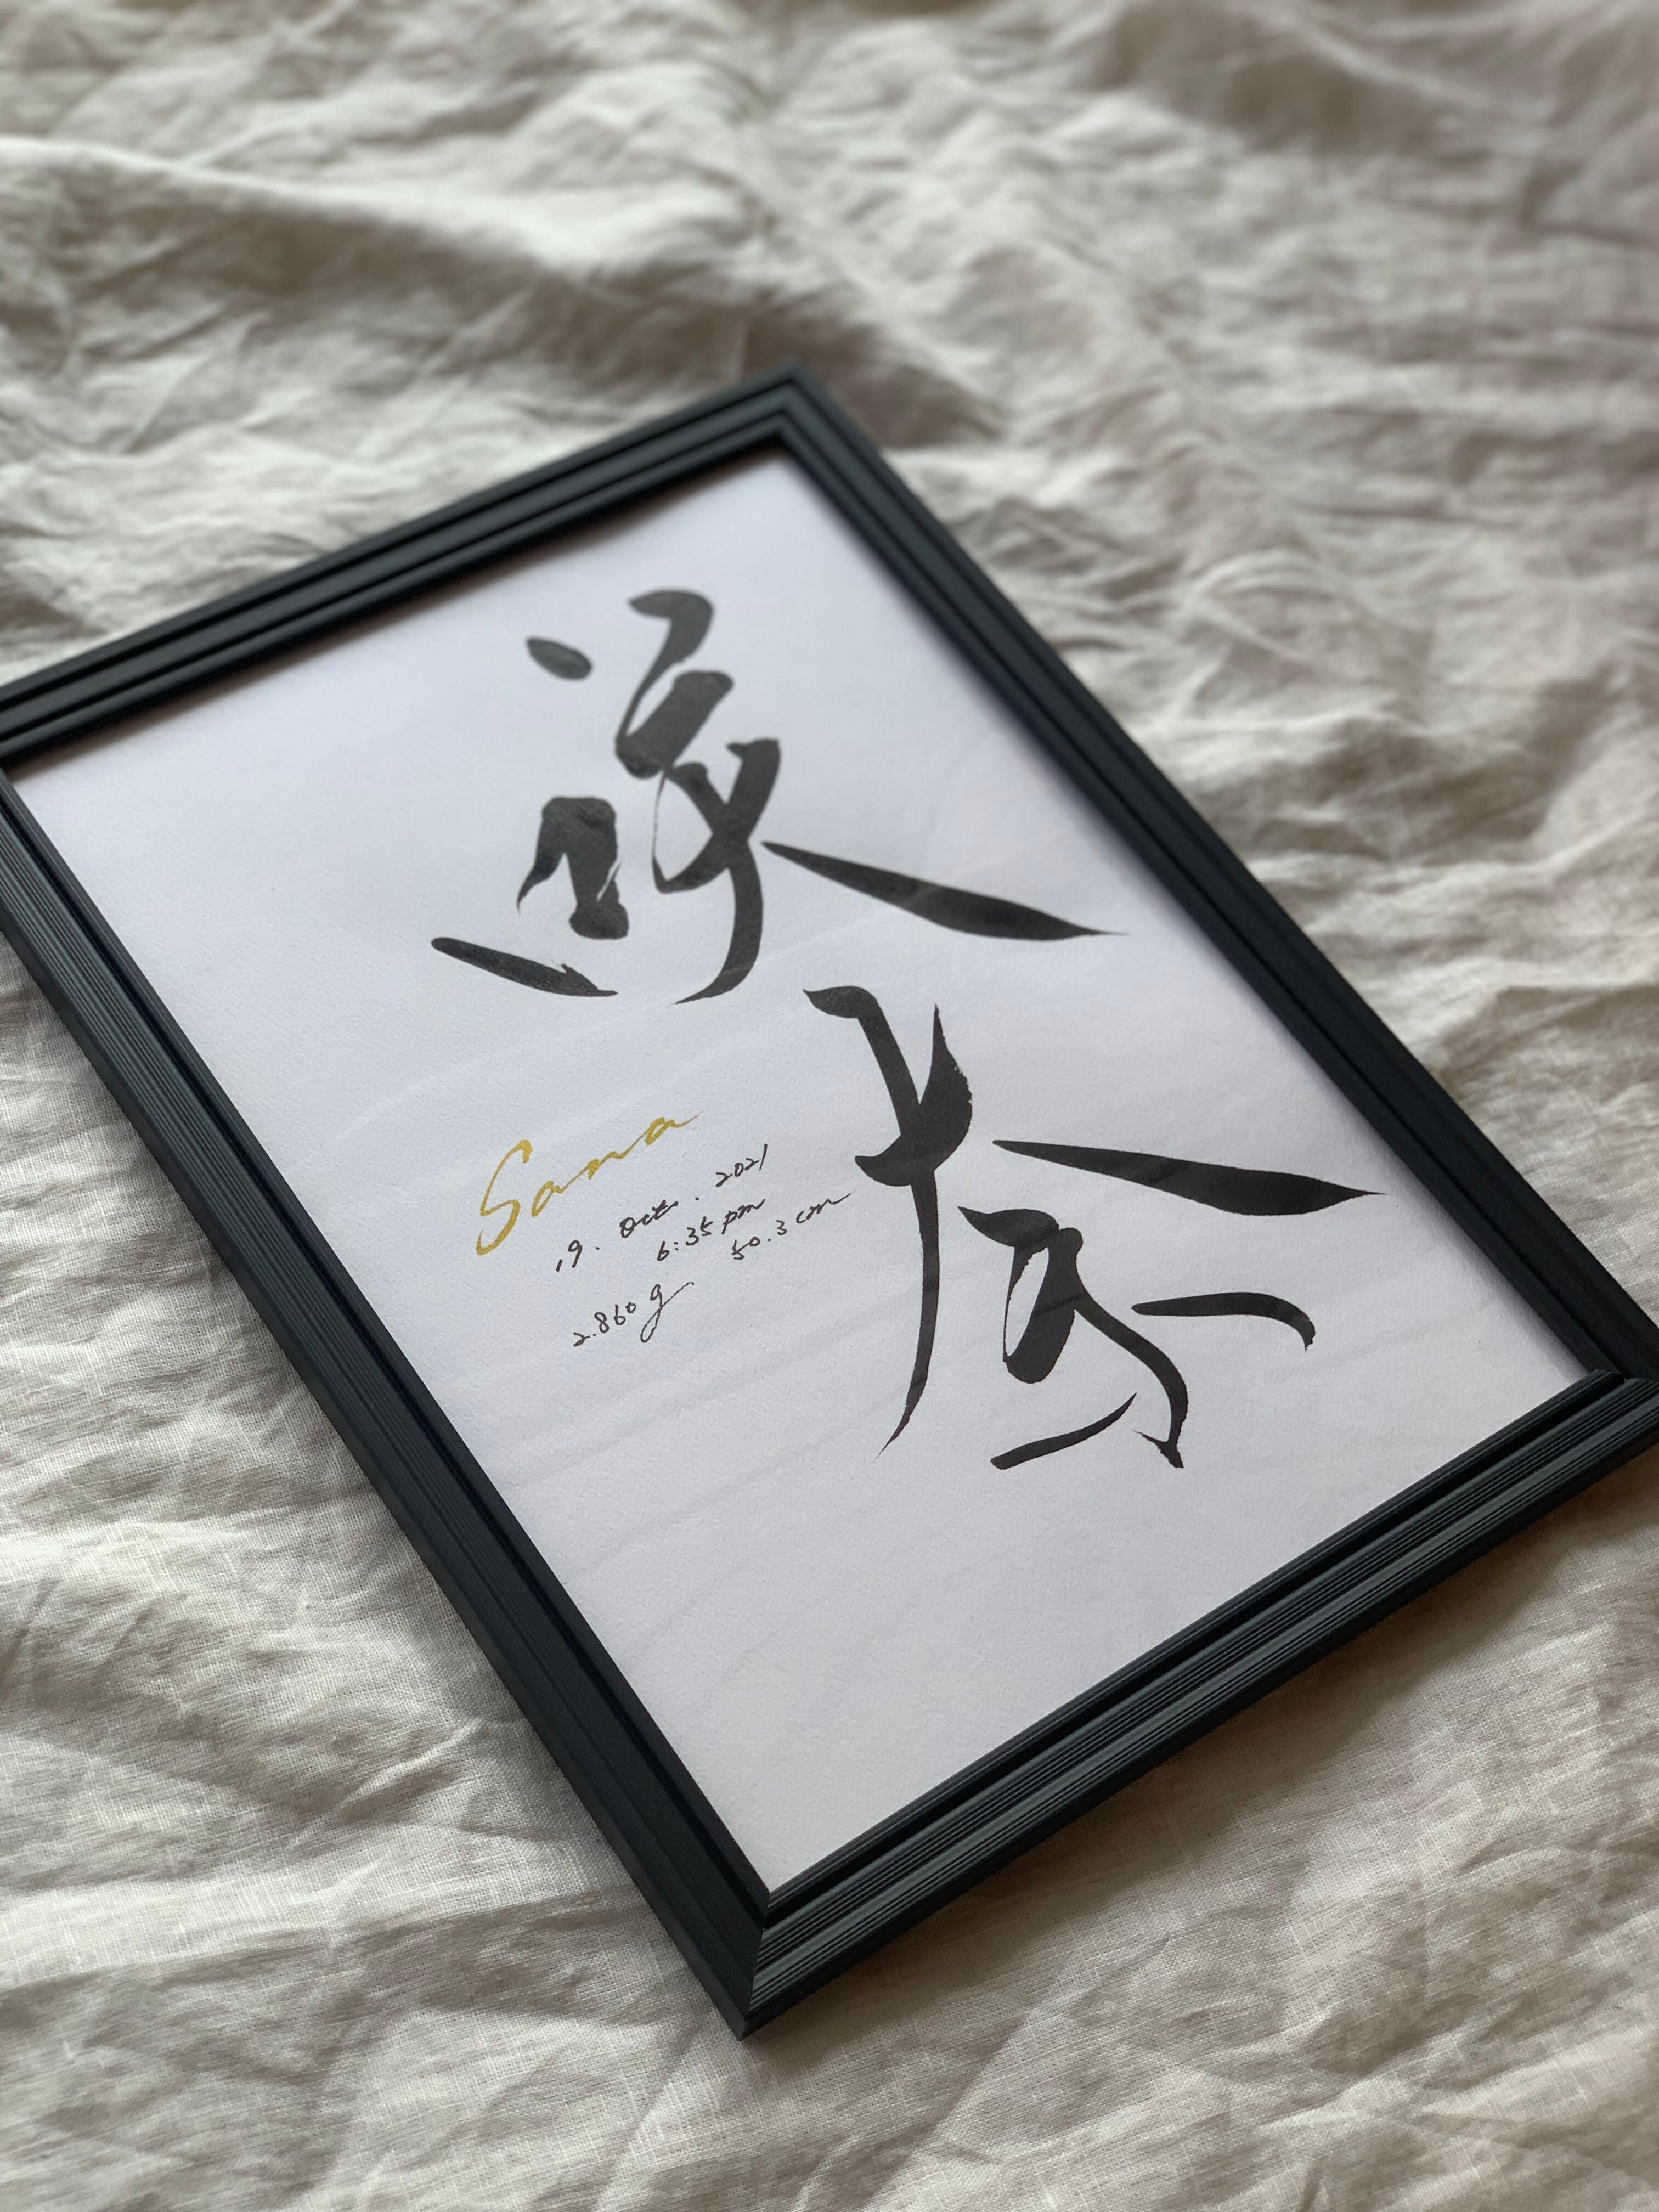 咲奈
Sana
19. Oct. 2021
6:35 pm
2.860 g 50.3 cm